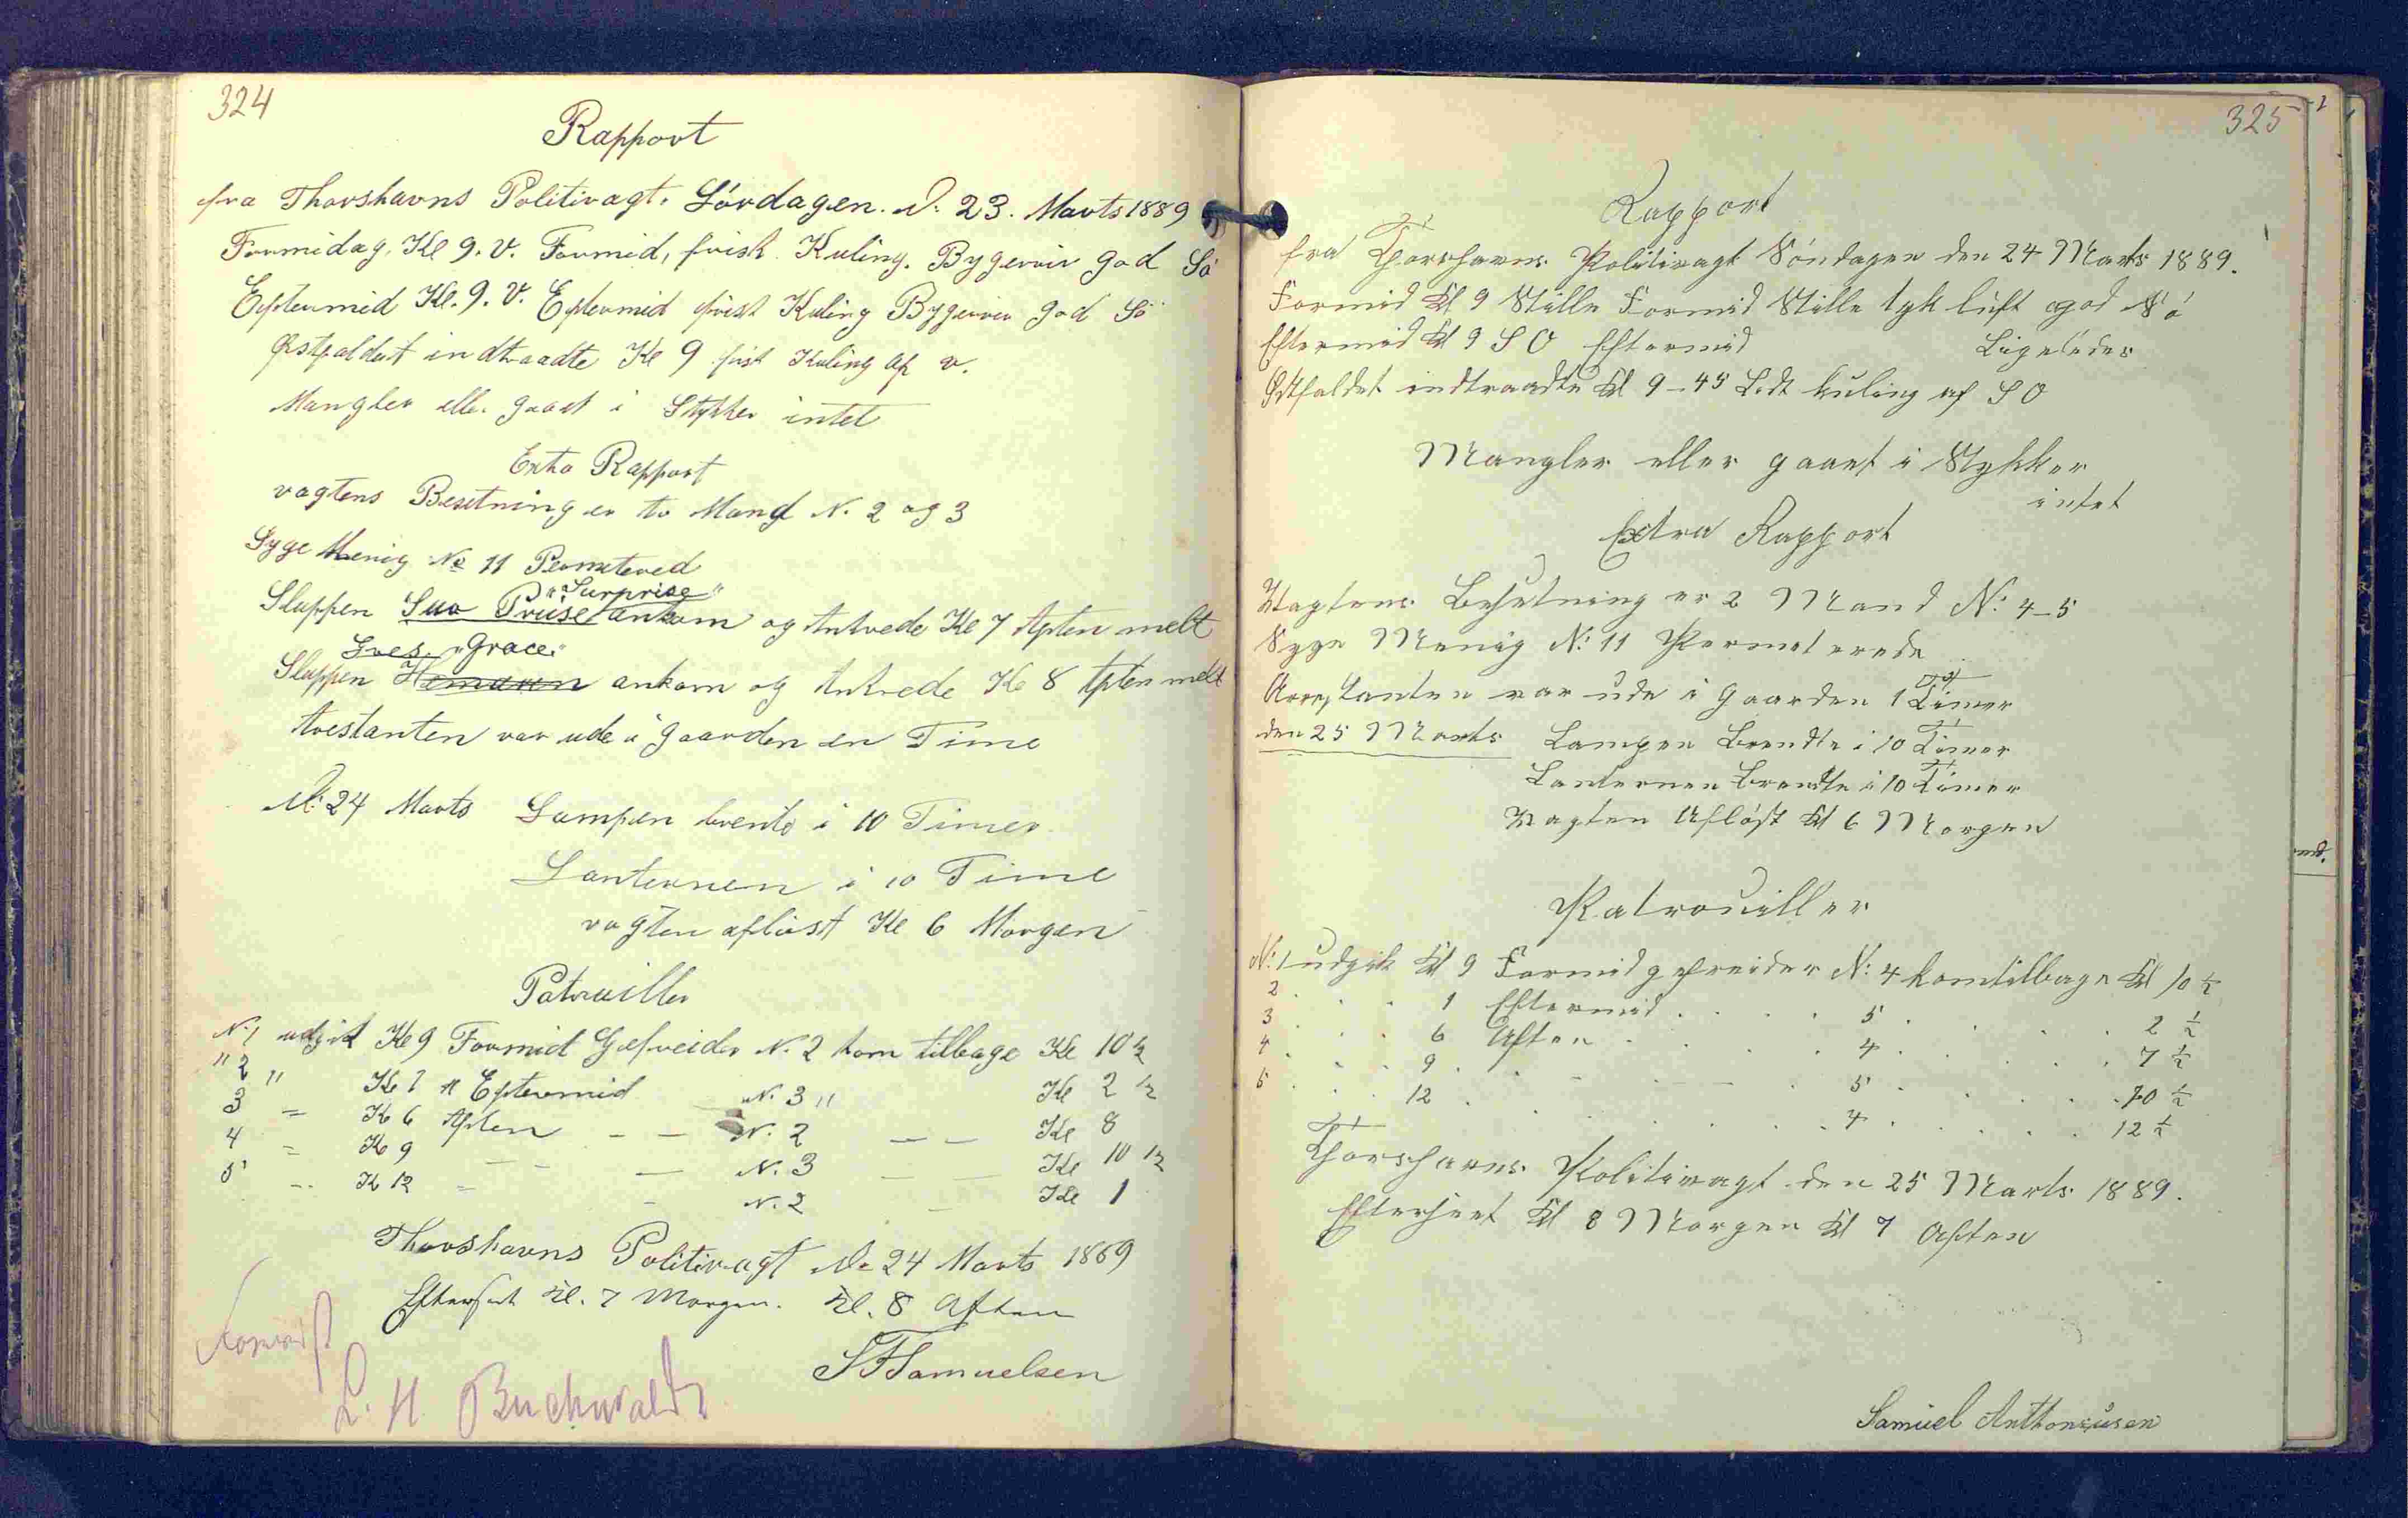 324
Rapport
fra Thorshavns Politivagt. Lördagen. d. 23. Marts 1889
Formidag. Kl 9. V. Formid, frisk Kuling. Bygervir god Sö
Eftermid Kl. 9. V. Eftermid frisk Kuling Bygervir god Sö
Østfaldet indtraadte Kl 9 frisk Kuling af v.
Mangler eller gaaet i Stykker intet
Extra Rapport
vagtens Besetning er to Mand N. 2 og 3
Syge Menig No 11 Permetered
"Surprise"
Sluppen Sur Priise ankom og Ankrede Kl 7 Aften melt
Sves. "Grace"
Sluppen ankom og Ankrede Kl 8 Aften melt
Arestanten var ude i Gaarden en Time
d. 24 Marts Lampen brente i 10 Timer
Lanternen i 10 Time
vagten aflöst Kl 6 Morgen
Patrouiller
N. 1 udgik Kl 9 Formid Gefreider N. 2 kom tilbage Kl 10 ½
" 2 " Kl 1 " Eftermid N. 3 " Kl 2 ½
3 = Kl 6 Aften — — N. 2 — — Kl 8
4 = Kl 9 — — — N. 3 — — Kl 10 ½
5 = Kl 12 = - N. 2 — Kl 1
Thorshavns Politivagt d. 24 Marts 1889
Efterset Kl. 7 Morgen. Kl. 8 Aften
SFSamuelsen
Forevist
L. H. Buchwaldt
325
Rapport
fra Thorshavns Politivagt Söndagen den 24 Marts 1889.
Formid Kl 9 Stille Formid Stille tyk luft god Sö
Eftermid Kl 9 S O Eftermid Ligeledes
Østfaldet indtraadte Kl 9-45 Let kuling af S O
Mangler eller gaaet i Stykker
intet
Extra Rapport
Vagtens Besetning er 2 Mand N: 4-5
Syge Menig N: 11 Permeterede
Arrestanten var ude i Gaarden 1 Timer
den 25 Marts Lampen Brendte i 10 Timer
Lanternen brendte i 10 Timer
Vagten Aflöst Kl 6 Morgen
Patrouiller
N: 1 udgik Kl 9 Formid gefreider N: 4 kom tilbage Kl 10 ½
2 . . . 1 Eftermid . . . . 5 . . . . 2 ½
3 . . . 6 Aften . . . . 4 . . . . 7 ½
4 . . . 9 . . . . 5 . . . . 10 ½
5 . . . 12 . . . . 4 . . . . 12 ½
Thorshavns Politivagt den 25 Marts 1889.
Efterset Kl 8 Morgen Kl 7 Aften
Samuel Anthoniusen